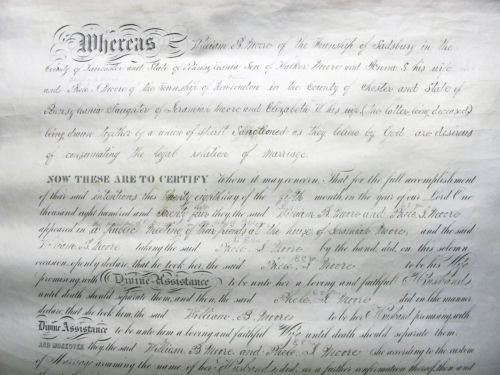 Whereas William B. Moore of the Township of Sadsbury in the
County of Lancaster and State of Pennsylvania Son of Walker Moore and his wife
and Moore of the Township of in the County of Chester and State of
Pennsylvania Daughter of Jeremiah Moore and Elizabeth H his wife (the latter being deceased)
being drawn together by a union of spirit Sanctioned as they believe by God are desirous
of consumating the legal relation of marriage.
NOW THESE ARE TO CERTIFY Whom it may concern. That for the full accomplishment
of their said intentions this twenty eighth day of the month in the year of our Lord One
thousand eight hundred and they, the said William B. Moore and S Moore
appeared in a Public Meeting at the house of Jeremiah Moore, and the said
William B. Moore taking the said S. Moore by the hand, did, on this solemn
occasion, openly declare, that he took her, the said S. Moore to be his Wife
promising, with Divine Assistance to be unto her a loving and faithful Husband
until death should separate them, and then, the said S. Moore did in like manner
declare, that she took him, the said William B. Moore to be her Husband promising, with
Divine Assistance to be unto him a loving and faithful Wife until death should separate them.
AND MOREOVER they, the said William B. Moore and S Moore she according to the custom
of Marriage assuming the name of her Husband did, as a further confirmation thereof, then and